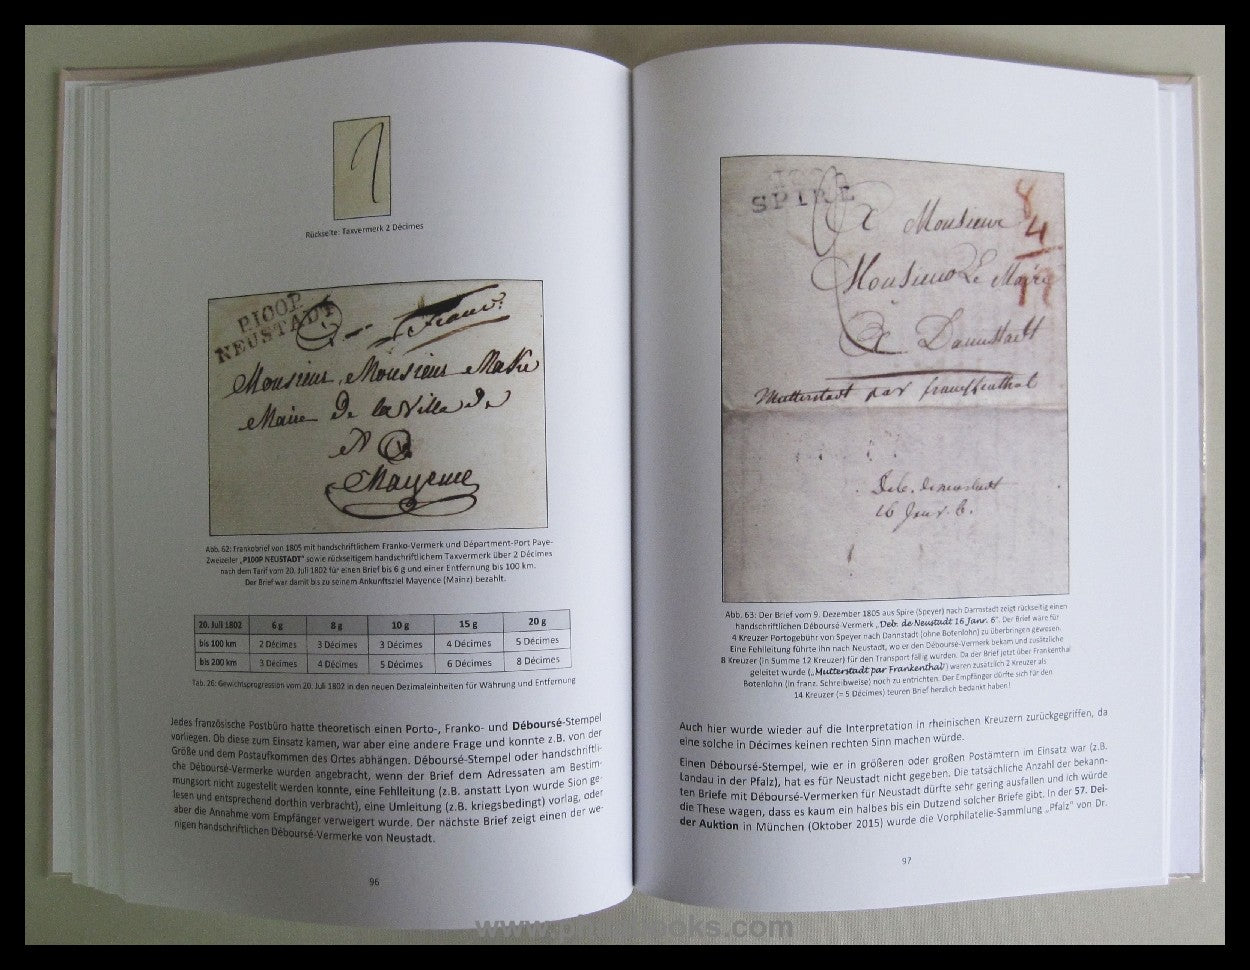 Rückseite: Taxvermerk 2 Décimes
P.100P.
NEUSTADT
Franco
Monsieur, Monsieur Make
Maire de la Ville de
à
Mayence
Abb. 62: Frankobrief von 1805 mit handschriftlichem Franko-Vermerk und Départment-Port Paye-
Zweizeiler „P100P NEUSTADT“ sowie rückseitigem handschriftlichem Taxvermerk über 2 Décimes
nach dem Tarif vom 20. Juli 1802 für einen Brief bis 6 g und einer Entfernung bis 100 km.
Der Brief war damit bis zu seinem Ankunftsziel Mayence (Mainz) bezahlt.
20. Juli 1802 6 g 8 g 10 g 15 g 20 g
bis 100 km 2 Décimes 3 Décimes 3 Décimes 4 Décimes 5 Décimes
bis 200 km 3 Décimes 4 Décimes 5 Décimes 6 Décimes 8 Décimes
Tab. 26: Gewichtsprogression vom 20. Juli 1802 in den neuen Dezimaleinheiten für Währung und Entfernung
Jedes französische Postbüro hatte theoretisch einen Porto-, Franko- und Déboursé-Stempel
vorliegen. Ob diese zum Einsatz kamen, war aber eine andere Frage und konnte z.B. von der
Größe und dem Postaufkommen des Ortes abhängen. Déboursé-Stempel oder handschriftli-
che Déboursé-Vermerke wurden angebracht, wenn der Brief dem Adressaten am Bestim-
mungsort nicht zugestellt werden konnte, eine Fehlleitung (z.B. anstatt Lyon wurde Sion ge-
lesen und entsprechend dorthin verbracht), eine Umleitung (z.B. kriegsbedingt) vorlag, oder
aber die Annahme vom Empfänger verweigert wurde. Der nächste Brief zeigt einen der we-
nigen handschriftlichen Déboursé-Vermerke von Neustadt.
96
SPIRE
8
4
A Monsieur
Monsieur Le Maire
A Dannstadt
Mutterstadt par franckenthal
Deb. de neustadt
16 Janr. 6.
Abb. 63: Der Brief vom 9. Dezember 1805 aus Spire (Speyer) nach Darmstadt zeigt rückseitig einen
handschriftlichen Déboursé-Vermerk „Deb. de Neustadt 16 Janr. 6“. Der Brief wäre für
4 Kreuzer Portogebühr von Speyer nach Dannstadt (ohne Botenlohn) zu überbringen gewesen.
Eine Fehlleitung führte ihn nach Neustadt, wo er den Déboursé-Vermerk bekam und zusätzliche
8 Kreuzer (in Summe 12 Kreuzer) für den Transport fällig wurden. Da der Brief jetzt über Frankenthal
geleitet wurde („Mutterstadt par Frankenthal“) waren zusätzlich 2 Kreuzer als
Botenlohn (in franz. Schreibweise) noch zu entrichten. Der Empfänger dürfte sich für den
14 Kreuzer (= 5 Décimes) teuren Brief herzlich bedankt haben!
Auch hier wurde wieder auf die Interpretation in rheinischen Kreuzern zurückgegriffen, da
eine solche in Décimes keinen rechten Sinn machen würde.
Einen Déboursé-Stempel, wie er in größeren oder großen Postämtern im Einsatz war (z.B.
Landau in der Pfalz), hat es für Neustadt nicht gegeben. Die tatsächliche Anzahl der bekann-
ten Briefe mit Déboursé-Vermerken für Neustadt dürfte sehr gering ausfallen und ich würde
die These wagen, dass es kaum ein halbes bis ein Dutzend solcher Briefe gibt. In der 57. Dei-
der Auktion in München (Oktober 2015) wurde die Vorphilatelie-Sammlung „Pfalz“ von Dr.
97